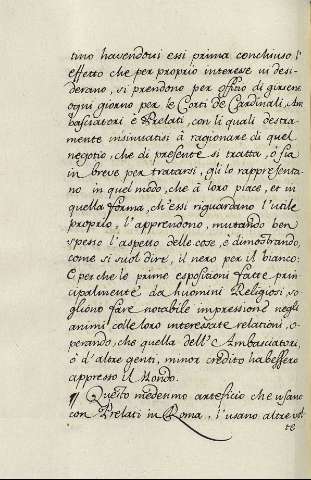 tino havendovi essi prima conchiuso l'
effetto che per proprio interesse vi desi-
derano, si prendono per offitio di girsene
ogni giorno per le Corti de Cardinali, Am
basciatori è Prelati, con li quali destra-
mente insinuatisi à ragionare di quel
negotio, che di presente si tratta, ò sia
in breve per trattarsi, gli lo rappresenta
no in quel modo, che à loro piace, et in
quella forma, ch'essi riguardano l'utile
proprio, l'apprendono, mutando ben
spesso l'aspetto delle cose, è dimostrando,
come si suol dire, il nero per il bianco:
E perche le prime espositioni fatte prin
cipalmente da huomini Religiosi, so
gliono fare notabile impressione negli
animi colle loro interessate relationi, o-
perando, che quella dell' Ambasciatori,
ò d'altre genti, minor credito habessero
appresso il Mondo.
Questo medesmo arteficio che usano
con Prelati in Roma, l'usano altre vol
te